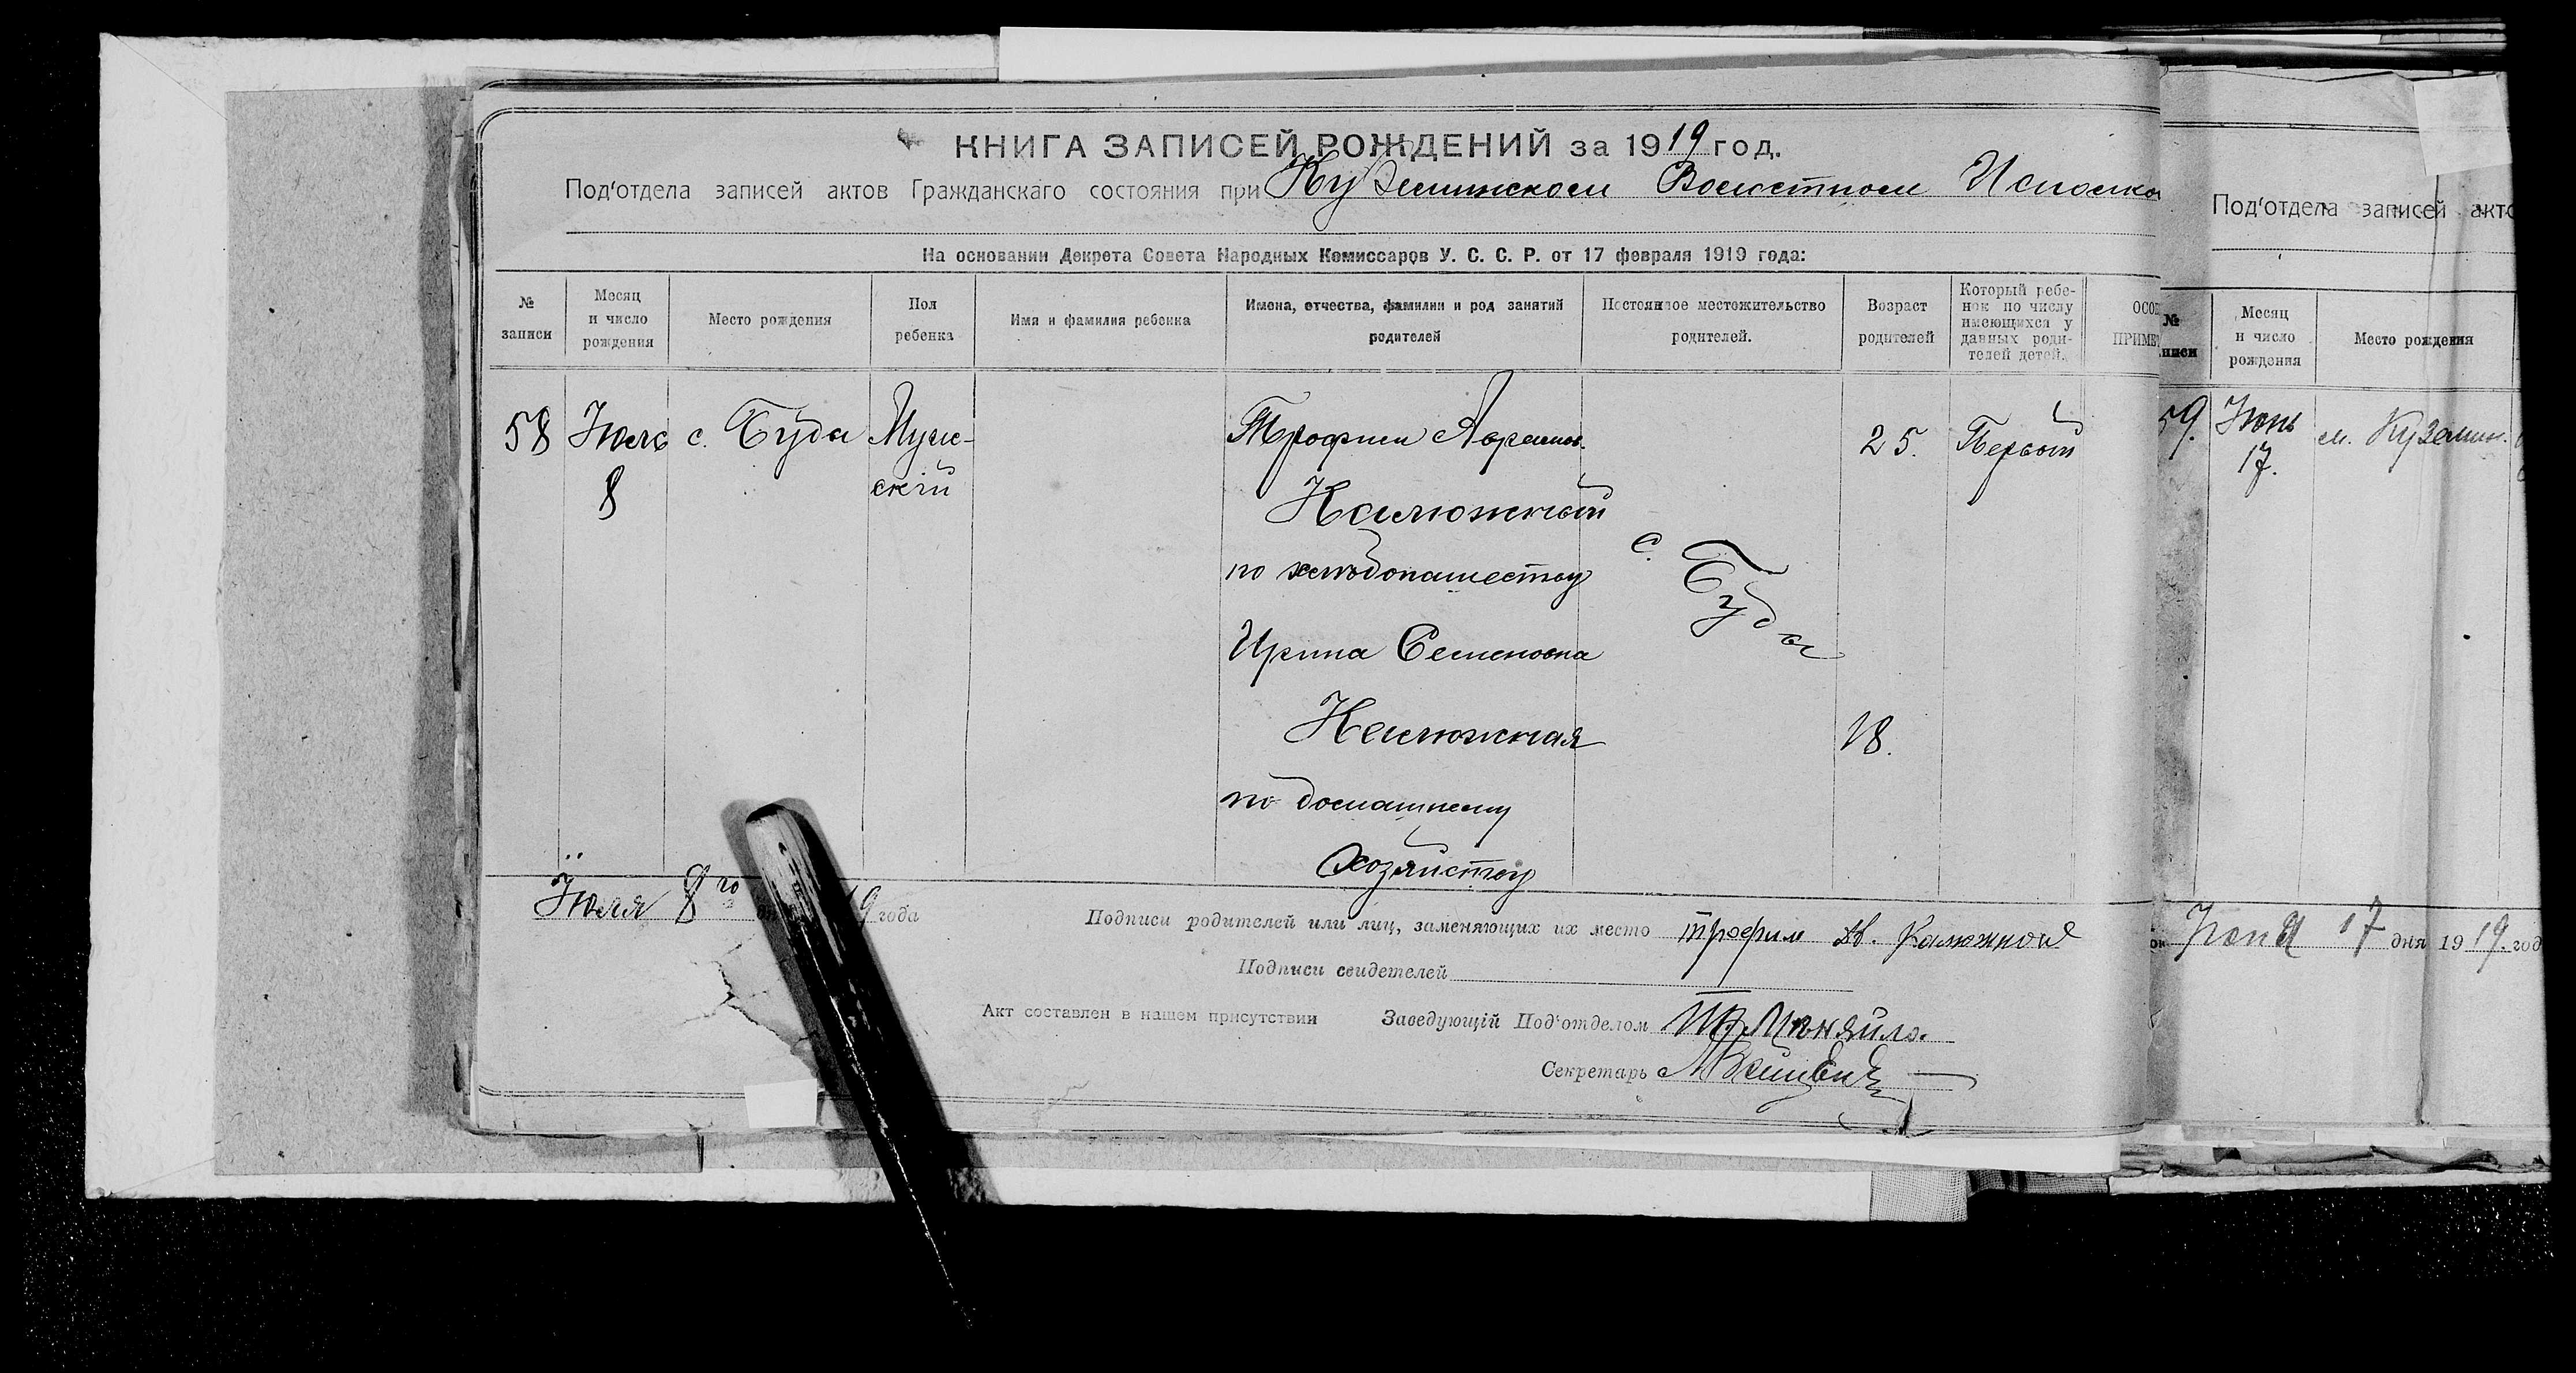 КНИГА ЗАПИСЕЙ РОЖДЕНИЙ за 1919 год.
Под'отдела записей актов Гражданскаго состояния при Куземинском Волостном Исполко
На основании Декрета Совета Народных Комиссаров У. С. С. Р. от 17 февраля 1919 года:
№ записи
Месяц и число рождения
Место рождения
Пол ребенка
Имя и фамилия ребенка
Имена, отчества, фамилии и род занятий родителей
Постоянное местожительство родителей.
Возраст родителей
Который ребенок по числу имеющихся у данных родителей детей.
58 Июль 8
с. Буда
Мужский
Трофим Аврамов.
Калюжный
по хлебопашеству
Ирина Семеновна
Калюжная
по домашнему
хозяйству
с. Буда
25.
18.
Первый
Июля 8го 19 года
Подписи родителей или лиц, заменяющих их место трофим Ав. Калюжной
Подписи свидетелей
Акт составлен в нашем присутствии
Заведующій Под'отделом
Секретарь
Под'отдела записей акто
№
Месяц и число рождения
Место рождения
59. Июнь 17.
м. Куземин.
Июня 17 дня 1919. год